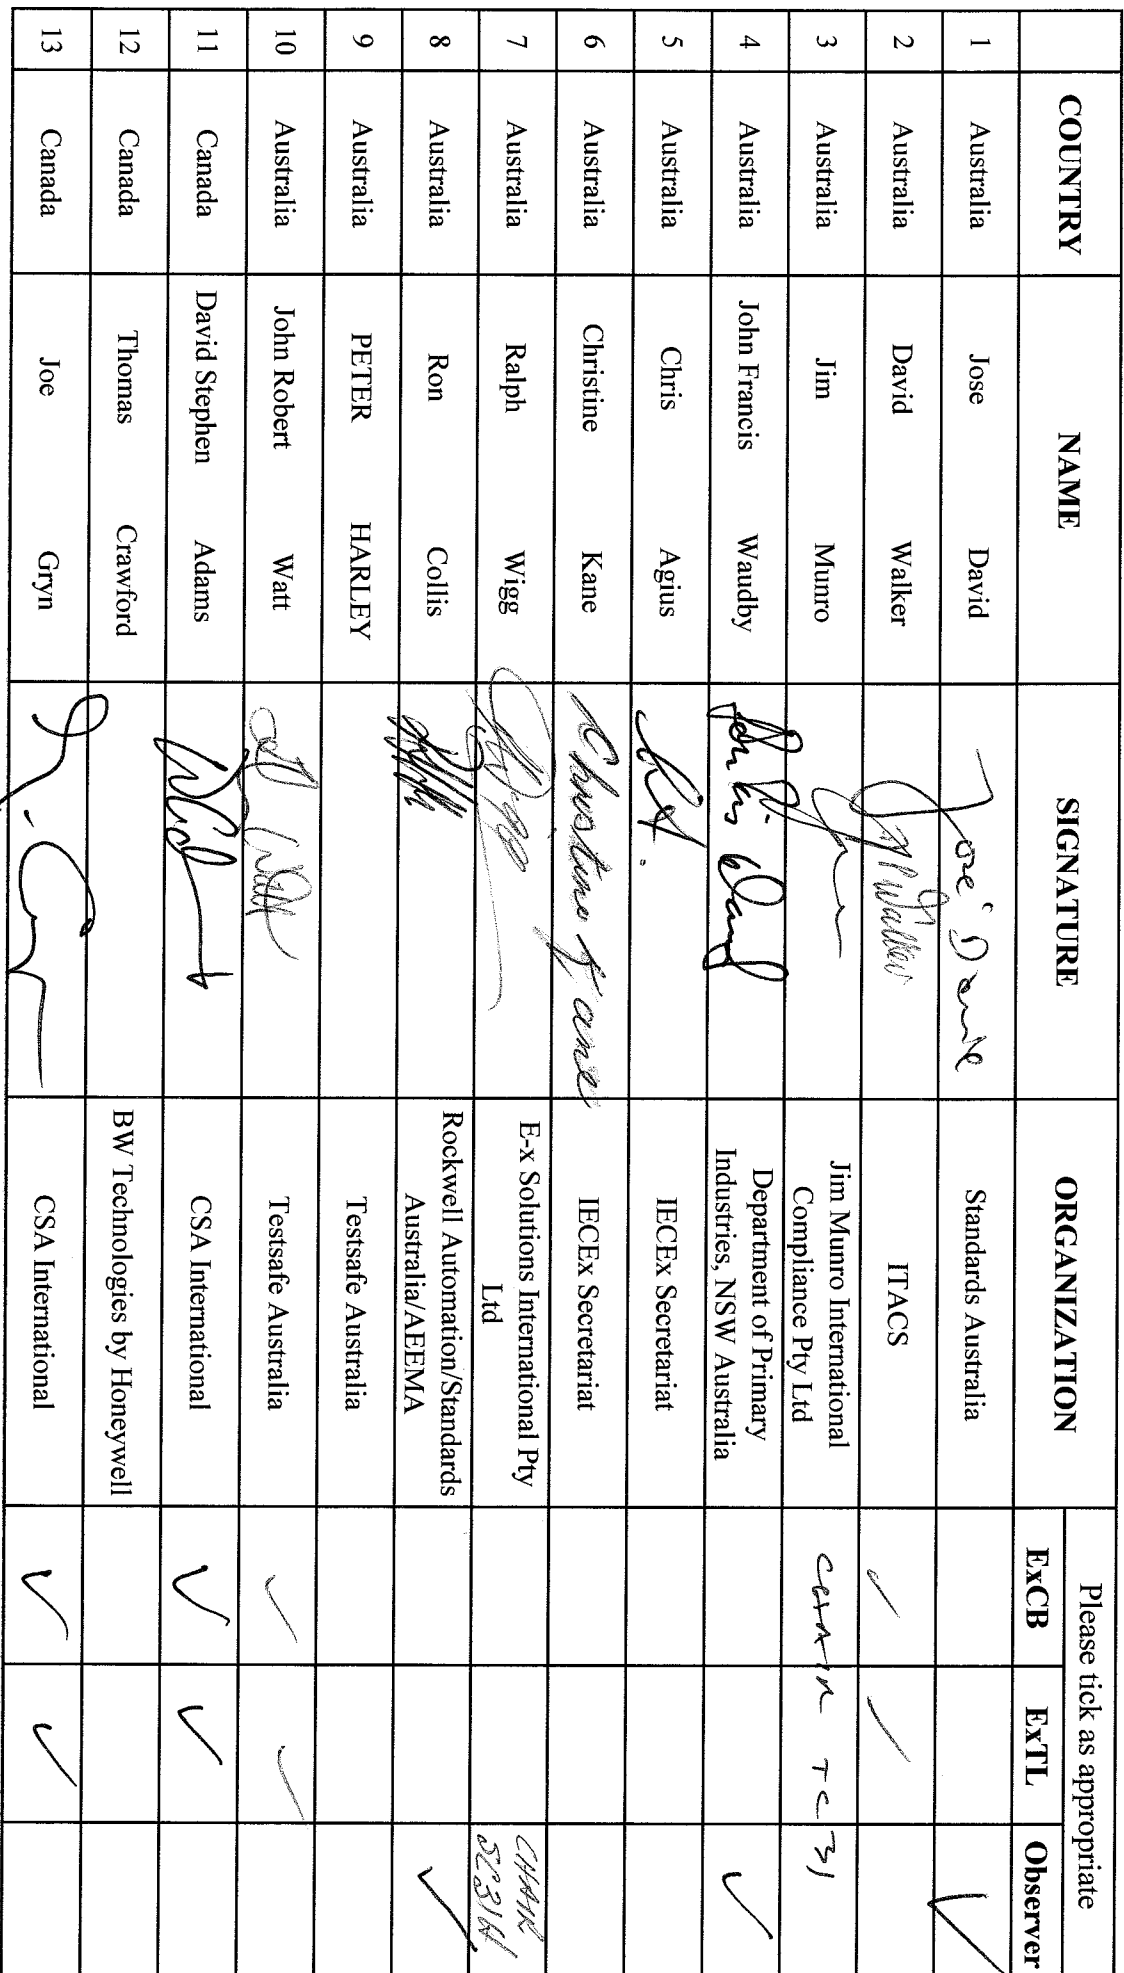 COUNTRY NAME SIGNATURE ORGANIZATION Please tick as appropriate
ExCB ExTL Observer
1 Australia Jose David Jose David Standards Australia ✓
2 Australia David Walker Walker ITACS ✓ ✓
3 Australia Jim Munro Jim Munro International
Compliance Pty Ltd CHAIR TC 31
4 Australia John Francis Waudby Department of Primary
Industries, NSW Australia ✓
5 Australia Chris Agius IECEx Secretariat
6 Australia Christine Kane Christine Kane IECEx Secretariat
7 Australia Ralph Wigg E-x Solutions International Pty
Ltd CHAIR
SC31H
8 Australia Ron Collis Rockwell Automation/Standards
Australia/AEEMA ✓
9 Australia PETER HARLEY Testsafe Australia
10 Australia John Robert Watt Watt Testsafe Australia ✓ ✓
11 Canada David Stephen Adams CSA International ✓ ✓
12 Canada Thomas Crawford BW Technologies by Honeywell
13 Canada Joe Gryn CSA International ✓ ✓